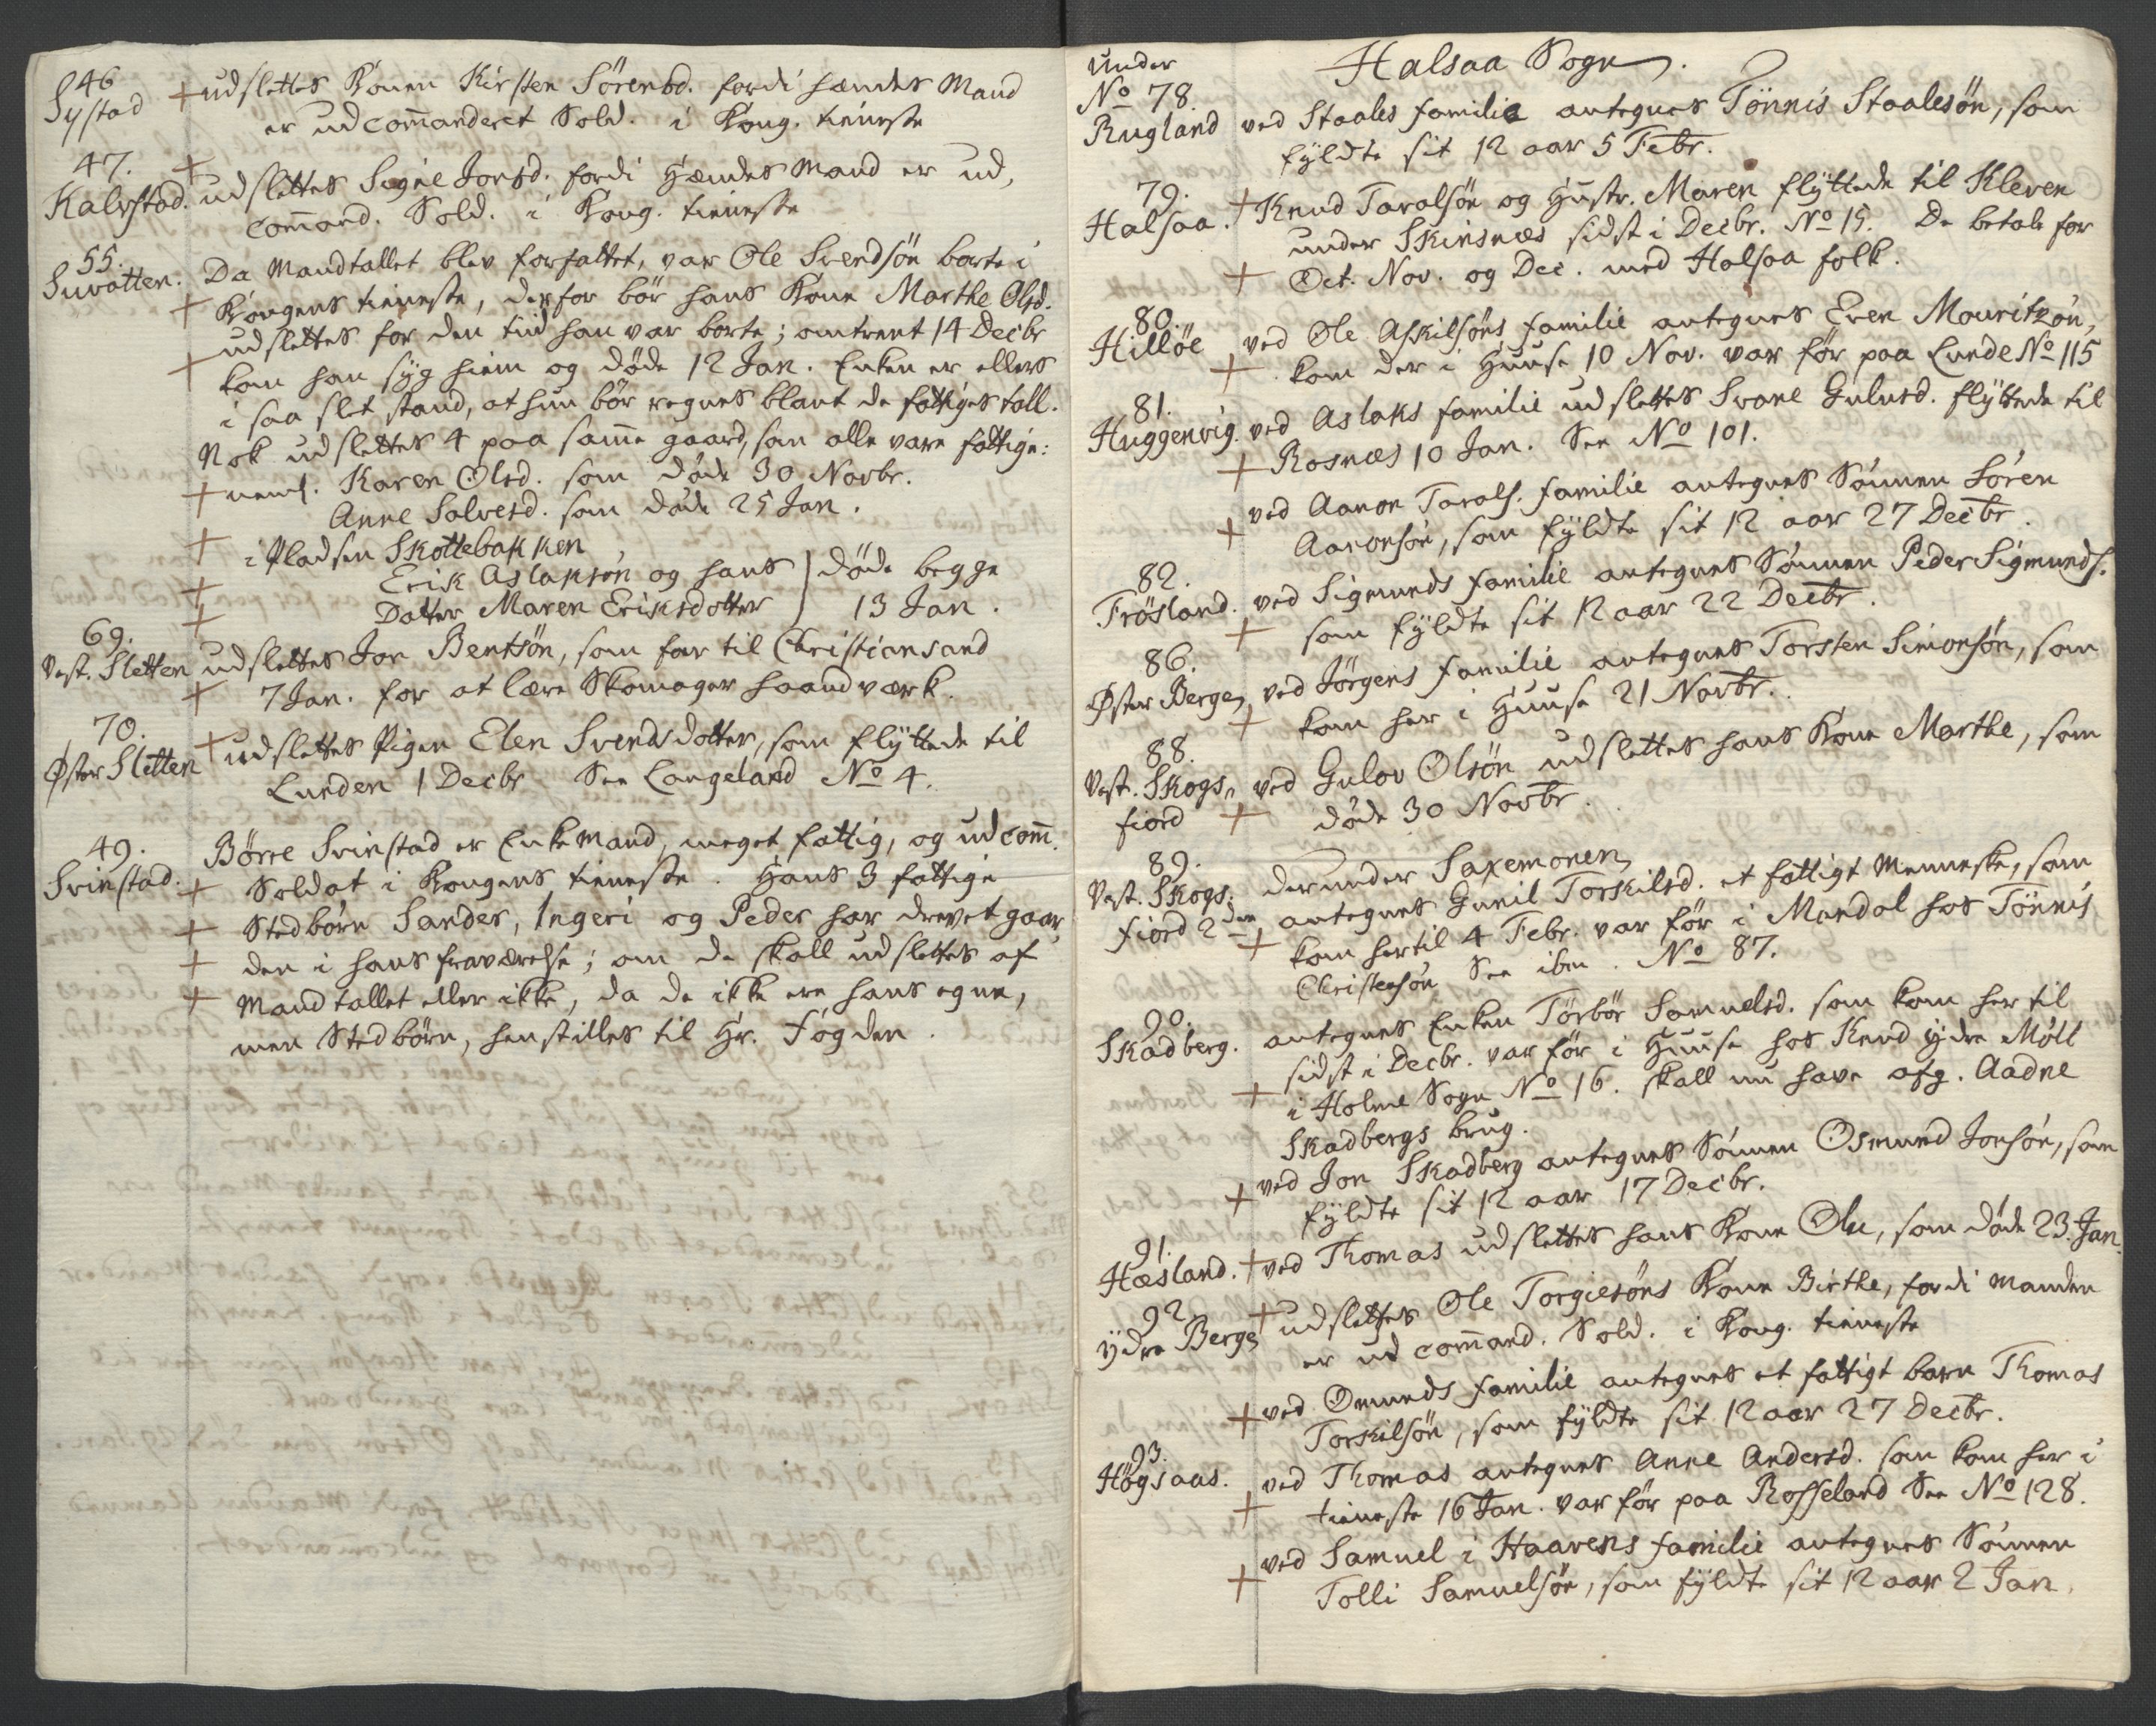 46
Systad + udslettes Konen Kirsten Sörensd. fordi hændes Mand
er udcom̄anderet Sold. i Kong. tieneste
47. +
Kalvstad. udslettes Signe Jonsd. fordi Hændes Mand er ud,
com̄and. Sold. i Kong. tieneste
55.
Suvatten. Da Mandtallet blev forfattet, var Ole Svendsön borte i
+ Kongens tieneste, derfor bör hans Kone Marthe Olsd.
udslettes for den tiid han var borte; omtrent 14 Decbr
+ kom han syg hiem og döde 12 Jan. Enken er ellers
i saa slet stand, at hun bör regnes blant de fattiges tall.
Nok udslettes 4 paa sam̄e gaard, som alle vare fattige:
+ neml. Karen Olsd. som döde 30 Novbr.
Anne Salvesd. som döde 25 Jan.
+ i Pladsen Skottebakken
+ Erik Aslaksön, og hans } döde begge
+ Datter Maren Eriksdotter } 13 Jan.
69.
Vest. Sletten udslettes Jon Bentsön, som for til Christiansand
+ 7 Jan. for at lære Skomager haandværk.
70.
Öster Sletten + udslettes Pigen Elen Svendsdotter, som flyttede til
Lunden 1 Decbr See Langeland No 4.
49.
Svinstad. Börre Svinstad er Enke Mand, meget fattig, og udcom̄.
+ Soldat i Kongens tieneste. Hans 3 fattige
+ Stedbörn Sander, Ingeri og Peder har drevet gaar
+ den i hans fraværelse; om de skall udslettes af
+ Mandtallet eller ikke, da de ikke ere hans egne,
men Stedbörn, henstilles til Hr. Fogden.
Under Halsaa Sogn.
No 78.
Rugland ved Staales familie antegnes Tönnis Staalesön, som
fyldte sit 12 aar 5 Febr.
79.
Halsaa. + Knud Taralsön og Hustr. Maren flyttede til Kleven
under Skinsnæs sidst i Decbr. No 15. De betale for
+ Oct. Nov. og Dec. med Halsaa folk.
80.
Hillöe ved Ole Askilsöns familie antegnes Even Mouritzön,
+ kom der i Huuse 10 Nov. var för paa Lunde No 115
81.
Huggenvig. ved Aslaks familie udslettes Svane Gulusd. flyttede til
+ Rosnæs 10 Jan. See No 101.
ved Aanon Tarals. familie antegnes Sönnen Sören
+ Aanonsön, som fyldte sit 12 aar 27 Decbr.
82.
Frösland. ved Sigmunds familie antegnes Sönnen Peder Sigmunds.
+ som fyldte sit 12 aar 22 Decbr.
86.
Öster Berge, ved Jörgens familie antegnes Torsten Simonsön, som
+ kom her i Huuse 21 Novbr.
88.
Vest. Skogs, ved Gulov Olsön udslettes hans Kone Marthe, som
fiord + döde 30 Novbr.
89. derunder Saxemonen,
Vest. Skogs. antegnes Gunil Torskilsd. et fattigt Menneske, som
fiord 2den + kom hertil 4 Febr. var för i Mandal hos Tönnis
Christensön See ibm. No 87.
90.
Skadberg. antegnes Enken Törbör Samuelsd. som kom her til
sidst i Decbr. var för i Huuse hos Knud ydre Möll
+ i Holme Sogn No 16. skall nu have afg. Aadne
Skadbergs brug.
+ ved Jon Skadberg antegnes Sönnen Osmund Jonsön, som
fyldte sit 12 aar 17 Decbr.
91.
Hæsland. + ved Thomas udslettes hans Kone Olu, som döde 23. Jan.
92
Ydre Berge, + udslettes Ole Torgiesöns Kone Birthe, fordi Manden
er ud com̄and. Sold. i Kong. tieneste
+ ved Omunds familie antegnes et fattigt barn Thomas
Torskilsön, som fyldte sit 12 aar 27 Decbr.
93.
Högsaas. ved Thomas antegnes Anne Andersd. som kom her i
+ tieneste 16 Jan. var för paa Rosseland See No 128.
ved Samuel i Haavens familie antegnes Sönnen
+ Tolli Samuelsön, som fyldte sit 12 aar 2 Jan.